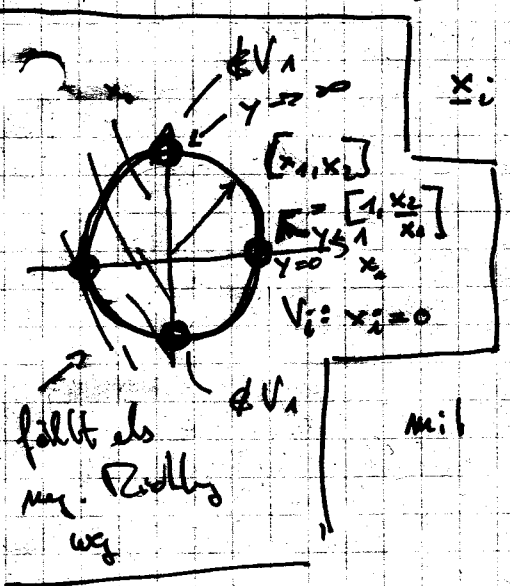 ∉ V₁
y → ∞
x_i
[x₁, x₂]
= [1, x₂/x₁]
y=0
V_i: x_i = 0
∉ V₁
fällt als
neg. Richtg
weg
mit